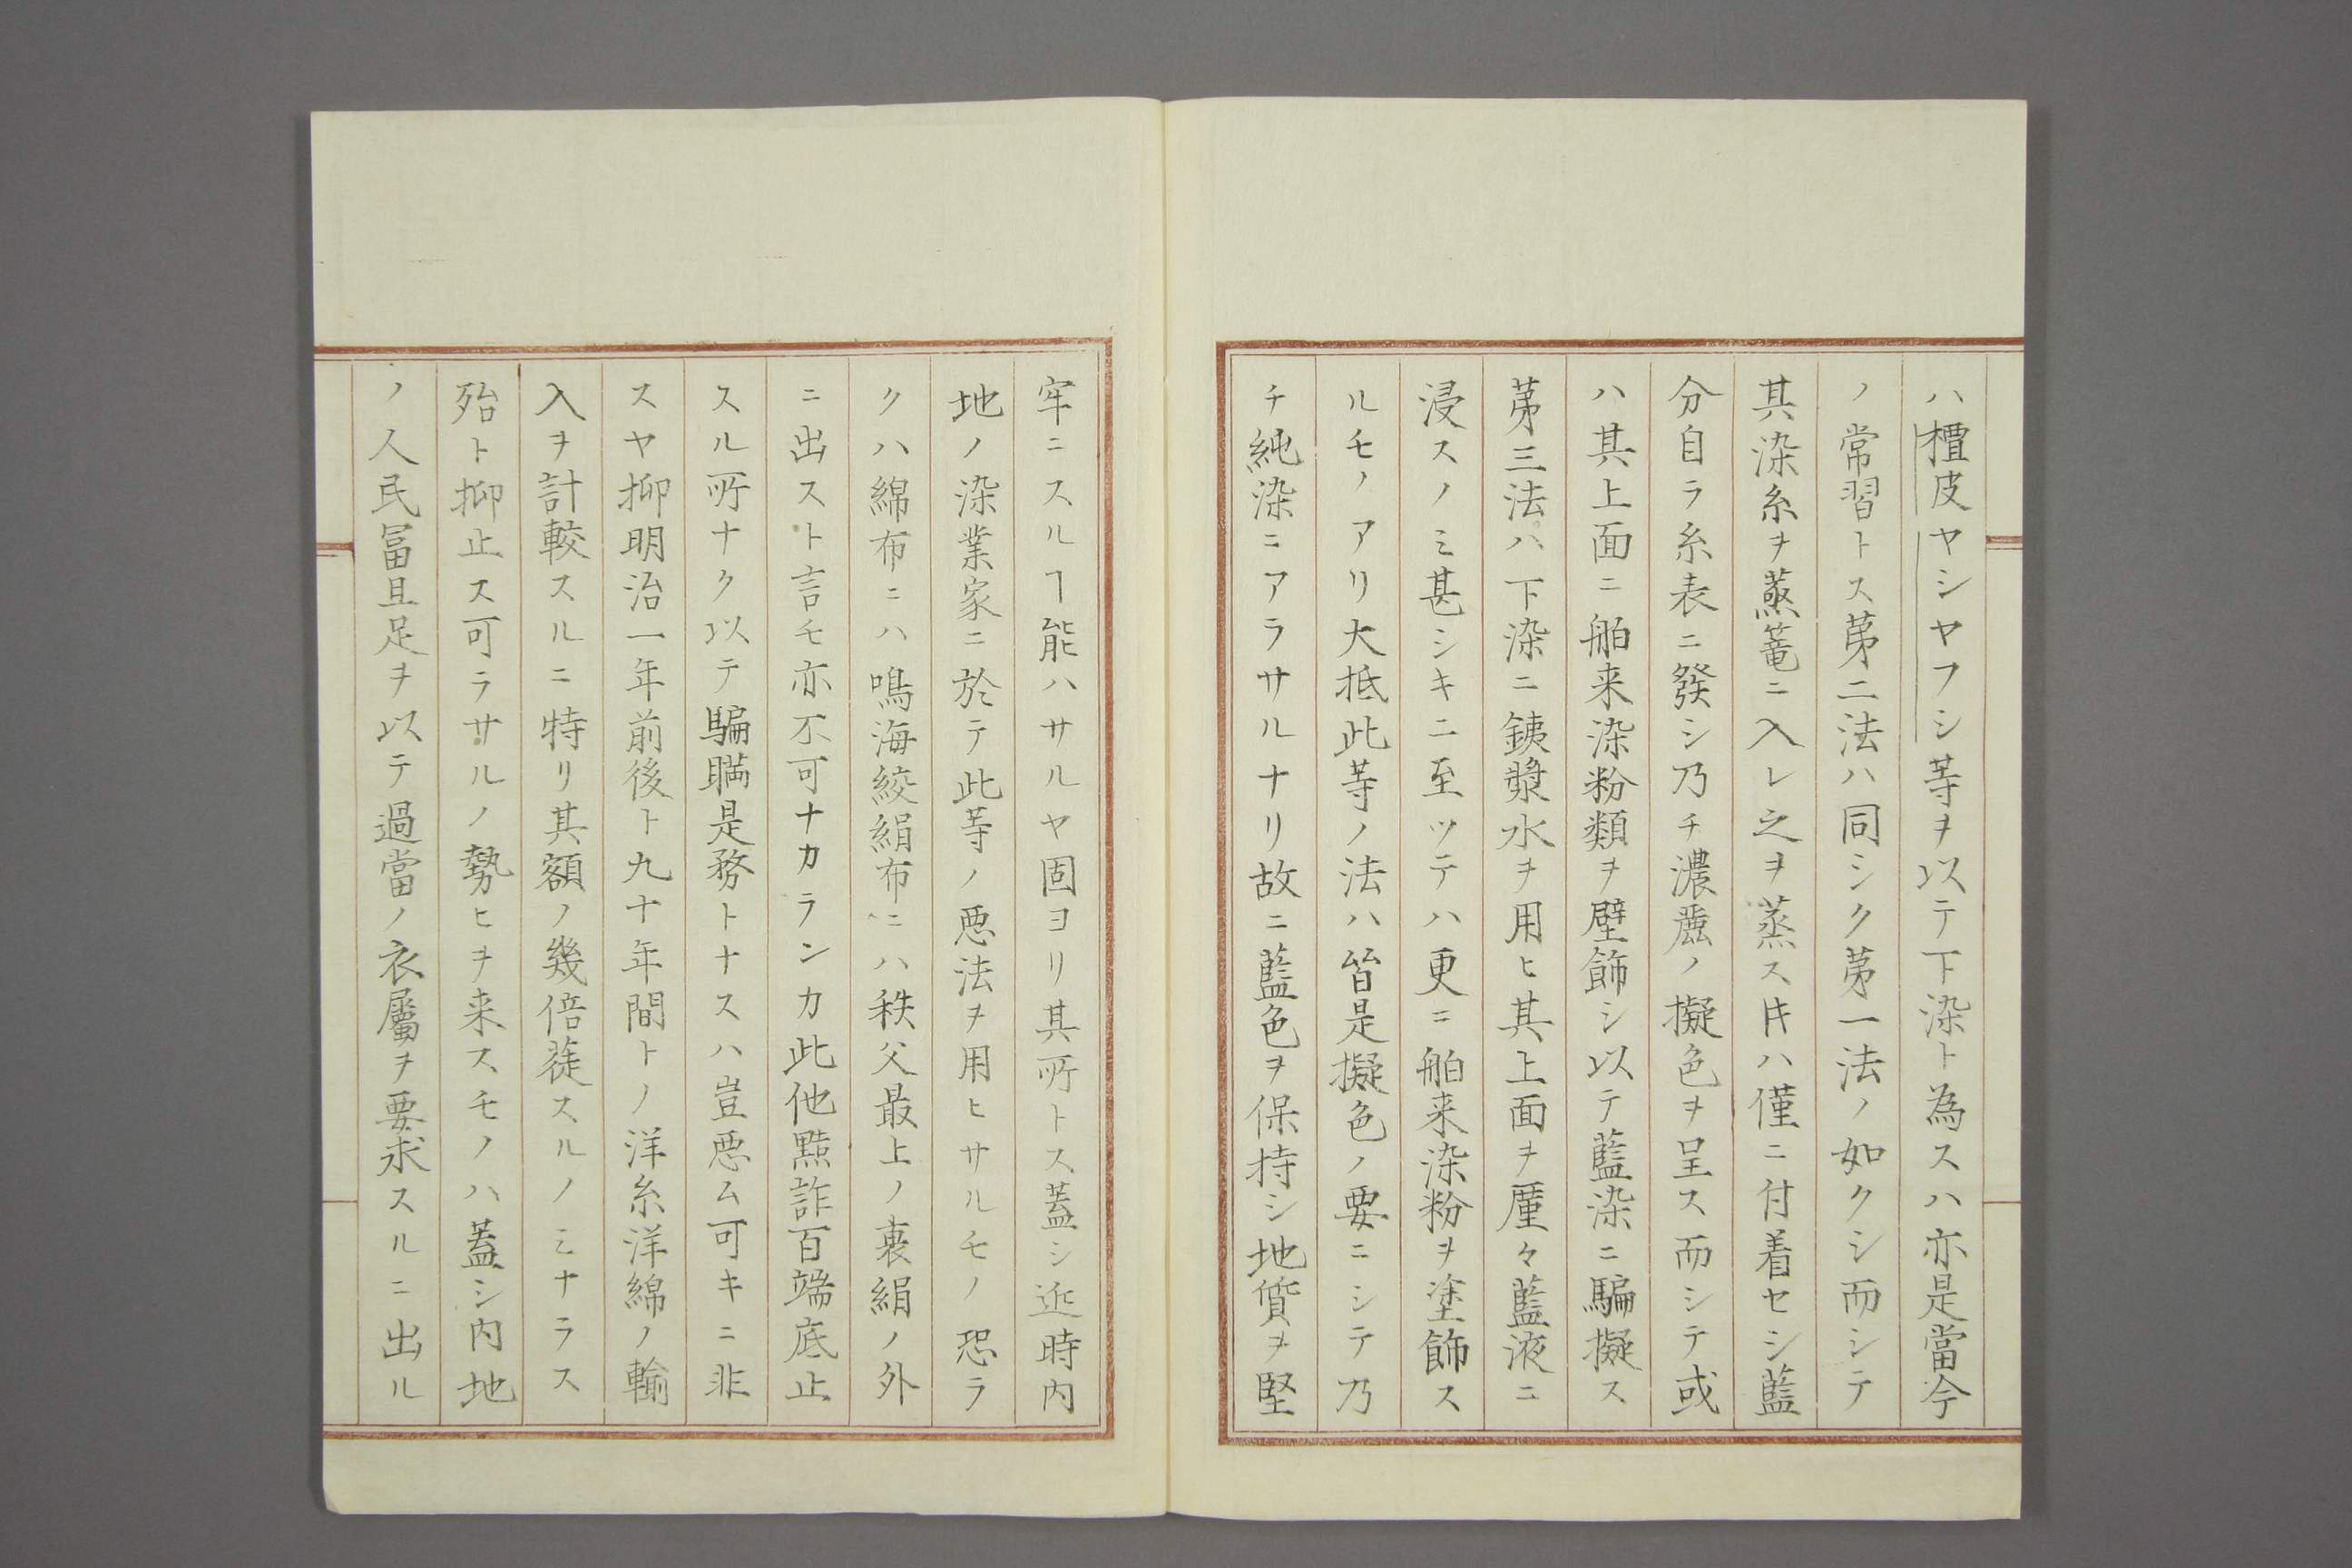 ハ檀皮ヤシヤフシ等ヲ以テ下染ト為スハ亦是當今
ノ常習トス苐二法ハ同シク苐一法ノ如クシ而シテ
其染糸ヲ蒸篭ニ入レ之ヲ蒸スㇳキハ僅ニ付着セシ藍
分自ラ糸表ニ發シ乃チ濃麁ノ擬色ヲ呈ス而シテ或
ハ其上面ニ舶来染粉類ヲ壁飾シ以テ藍染ニ騙擬ス
苐三法ハ下染ニ銕漿水ヲ用ヒ其上面ヲ厪々藍液ニ
浸スノミ甚シキニ至ツテハ更ニ舶来染粉ヲ塗飾ス
ルモノアリ大抵此等ノ法ハ皆是擬色ノ要ニシテ乃
チ純染ニアラサルナリ故ニ藍色ヲ保持シ地質ヲ堅
牢ニスルヿ能ハサルヤ固ヨリ其所トス蓋シ近時内
地ノ染業家ニ於テ此等ノ悪法ヲ用ヒサルモノ恐ラ
クハ綿布ニハ鳴海絞絹布ニハ秩父最上ノ裏絹ノ外
ニ出スト言モ亦不可ナカランカ此他黠詐百端底止
スル所ナク以テ騙瞞是務トナスハ豈悪ム可キニ非
スヤ抑明治一年前後ト九十年間トノ洋糸洋綿ノ輸
入ヲ計較スルニ特リ其額ノ幾倍蓰スルノミナラス
殆ト抑止ス可ラサルノ勢ヒヲ来スモノハ蓋シ内地
ノ人民冨且足ヲ以テ過當ノ衣屬ヲ要求スルニ出ル